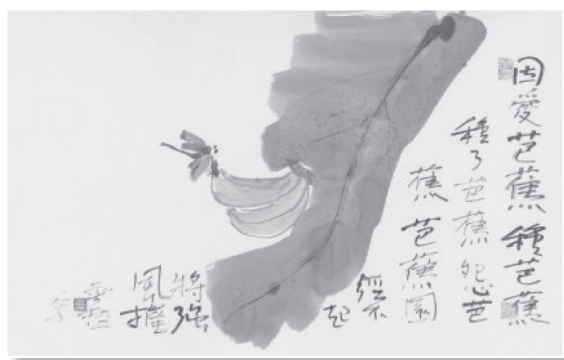 因愛芭蕉種芭蕉
種了芭蕉怨芭
蕉芭蕉園
經不
起
將强
風摧